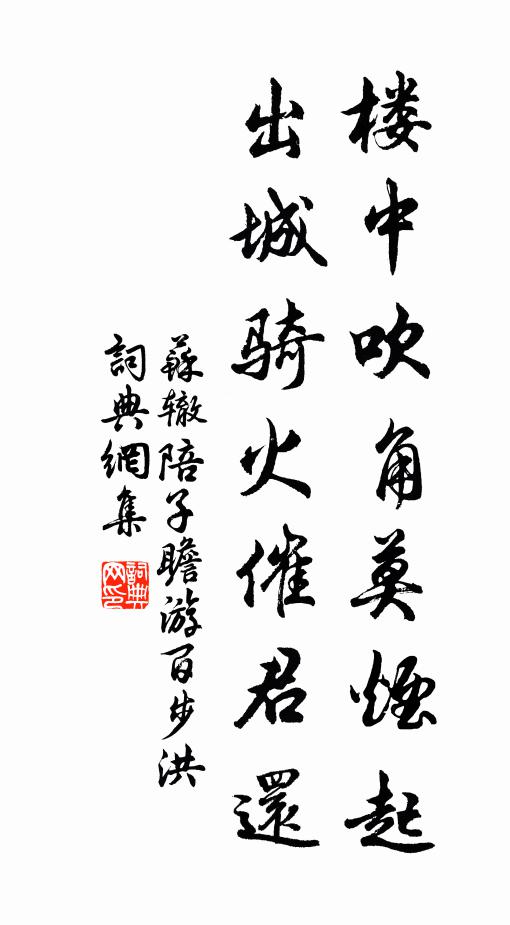 楼中吹角莫煙起
出城骑火催君還
蘇辙陪子瞻游百步洪
詞典網集
詞典网印